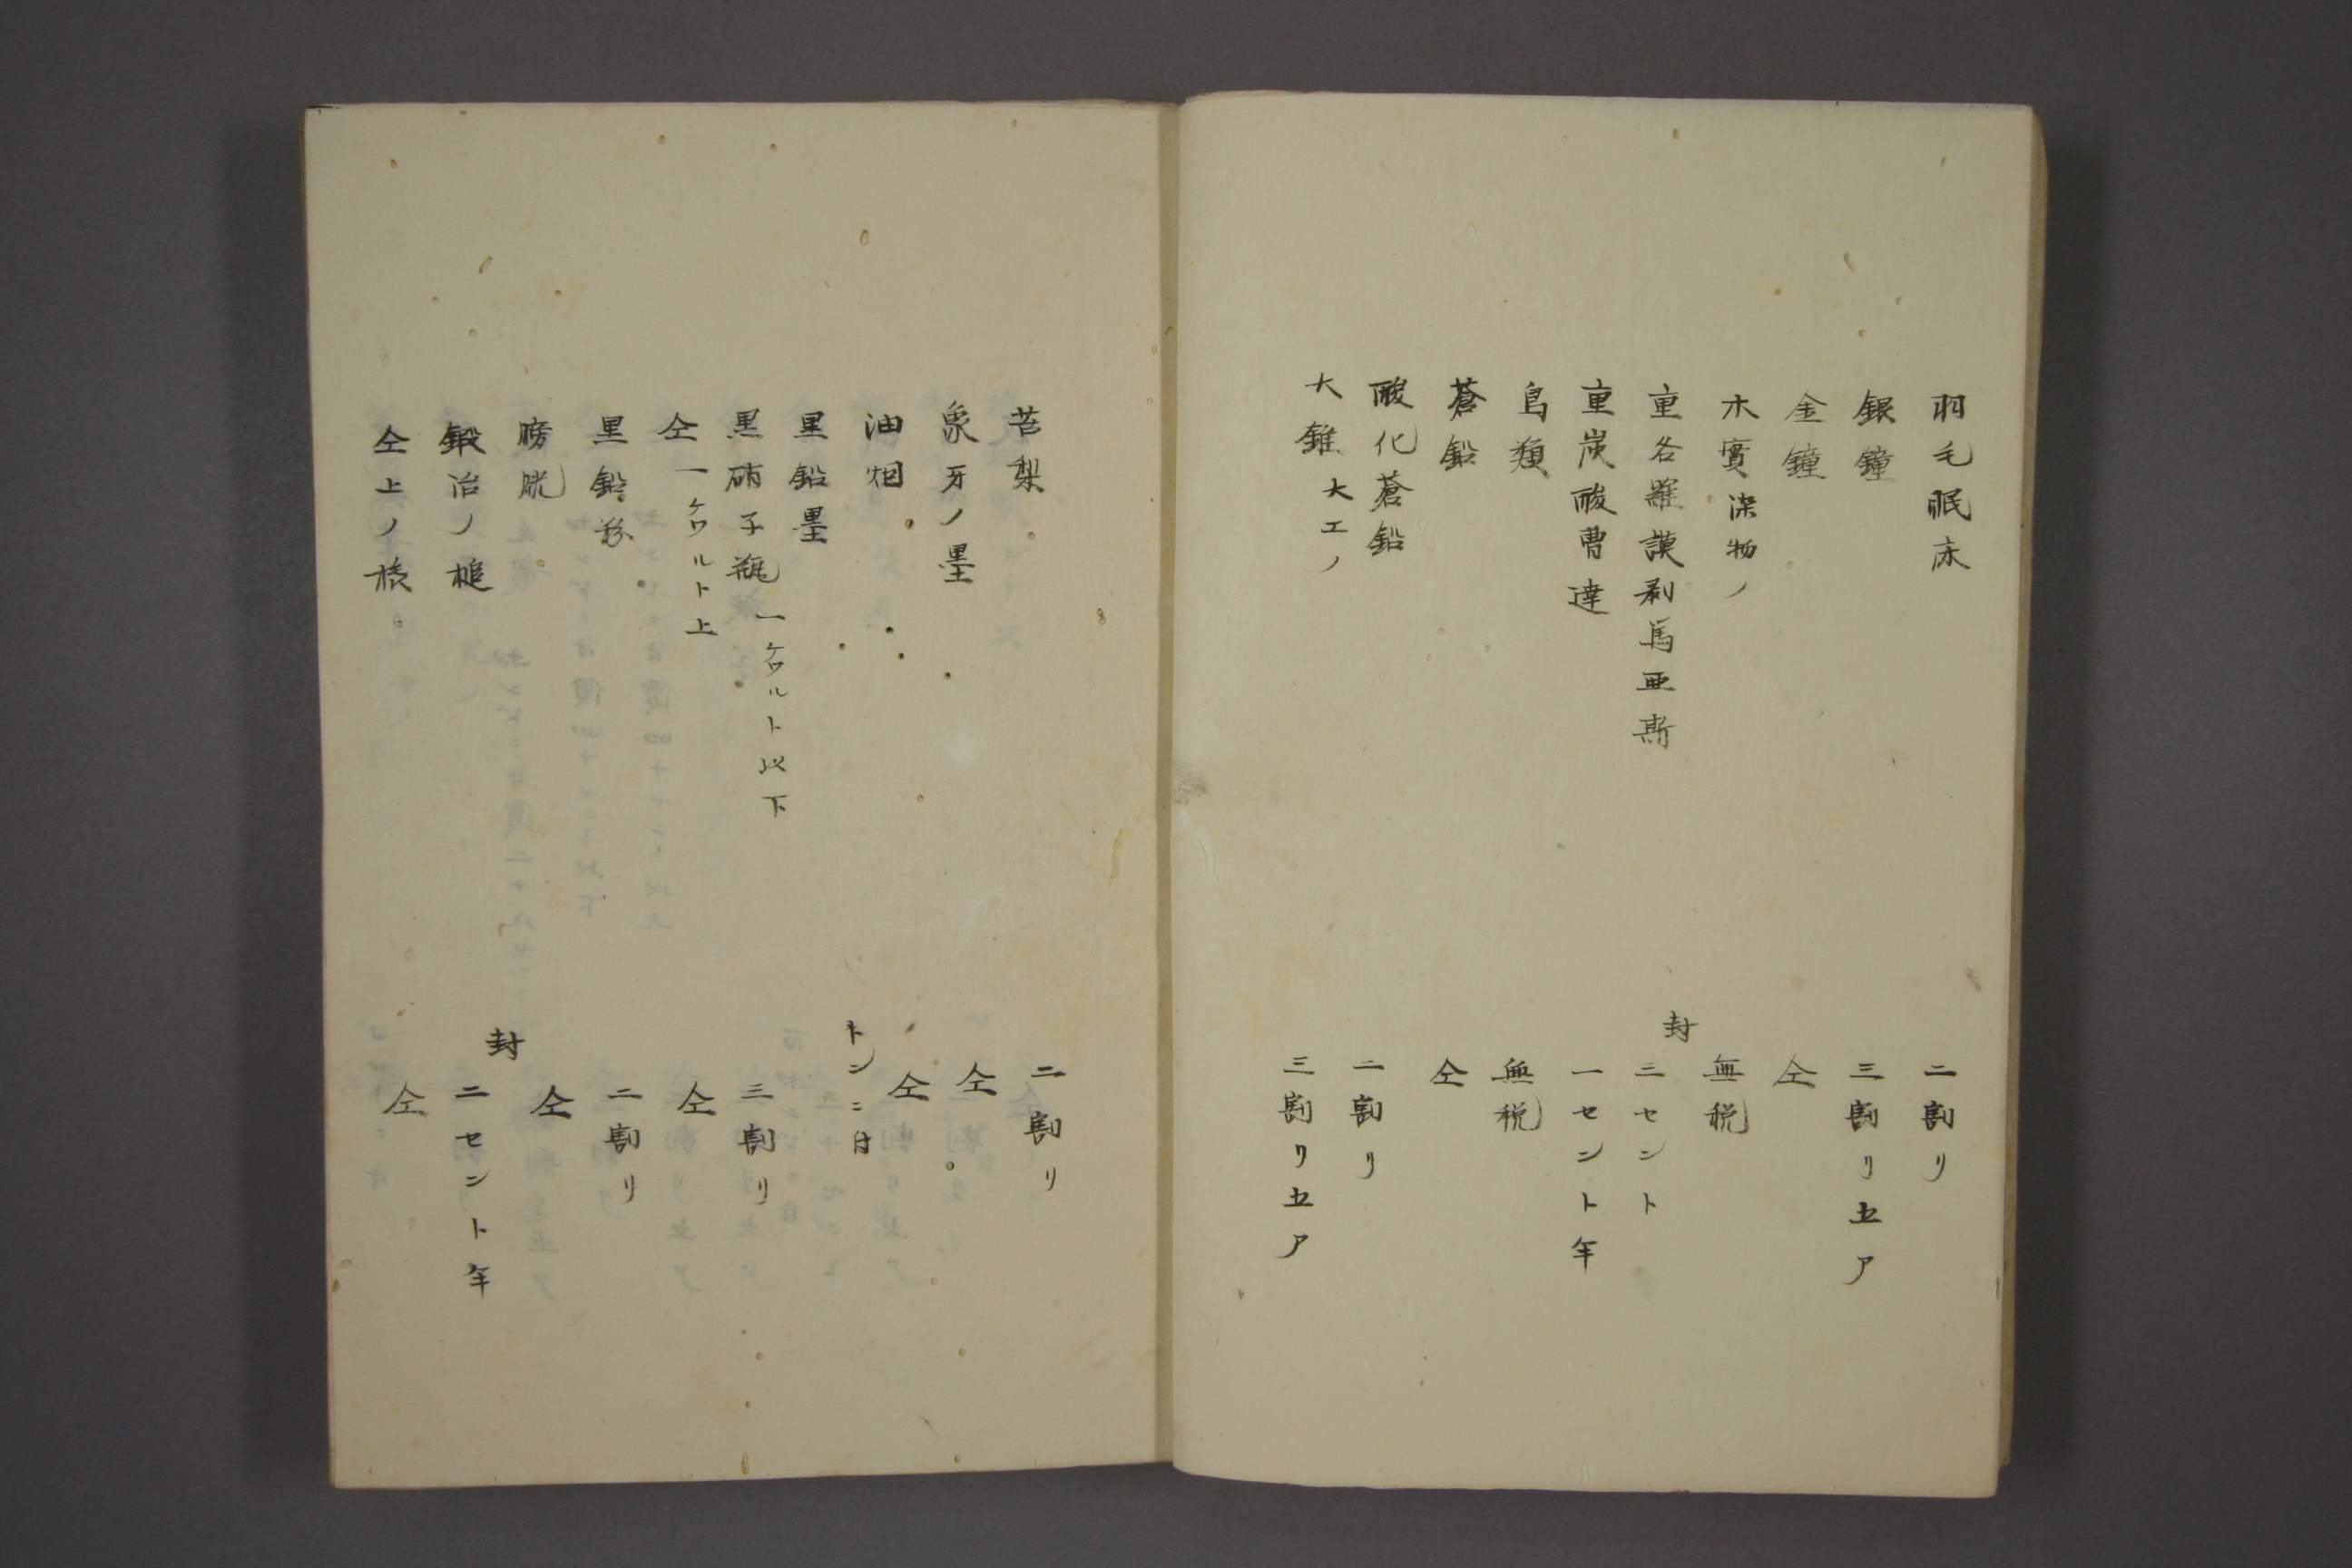 羽毛眠床 二割リ
銀鐘 三割リ五ア
金鐘 仝
木實染物ノ 無税
重各羅謨剥馬亜斯 封三セント
重炭酸曹達 一セント半
鳥類 無税
蒼鉛 仝
酸化蒼鉛 二割リ
大錐大工ノ 三割リ五ア
苦梨 二割リ
象牙ノ墨 仝
油烟 仝
黒鉛墨 トンニ付
黒硝子瓶一ケワルト以下 三割リ
仝一ケワルト上 仝
黒鉛粉 二割リ
膀胱 仝
鍛冶ノ槌 封二セント半
仝上ノ 仝